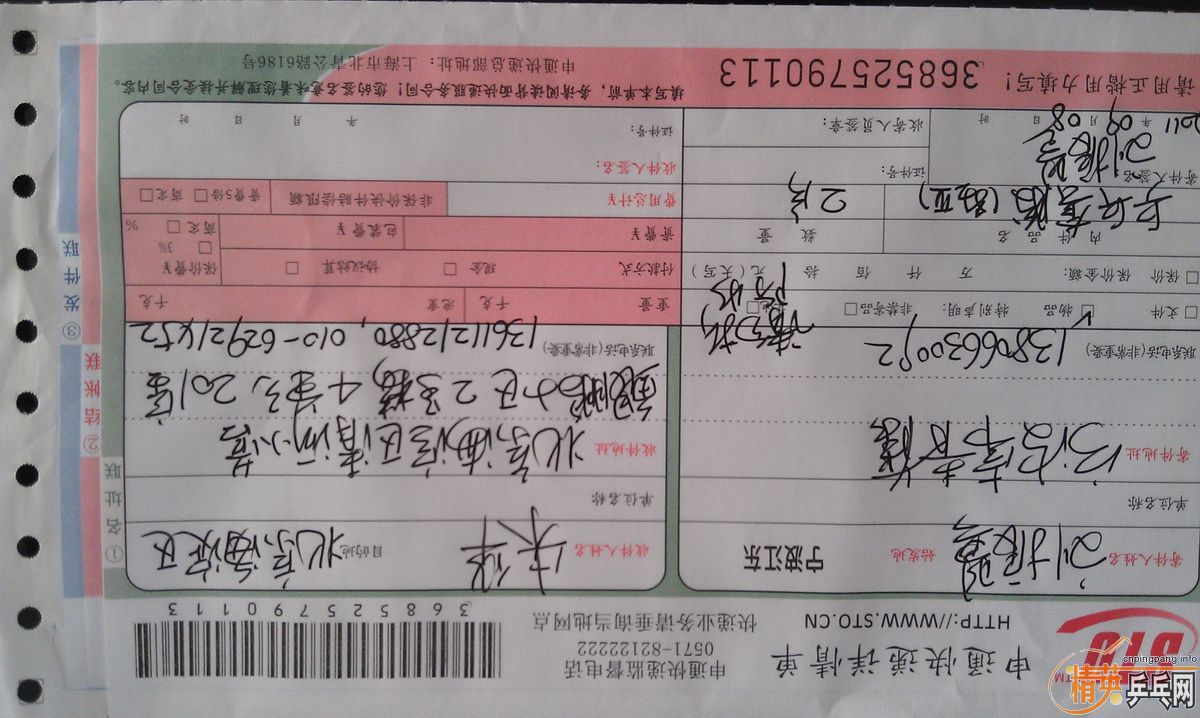 STO
申通快递详情单
HTTP://WWW.STO.CN
申通快递监督电话
0571-82122222
快递业务请垂询当地网点
368525790113
寄件人姓名
始发地
宁波江东
收件人姓名
朱华
目的地
北京海淀区
单位名称
单位名称
寄件地址
收件地址
北京海淀区清河小营
小区23楼4单元201室
联系电话(非常重要)
13806630092
联系电话(非常重要)
13611212880, 010-62921452
文件
物品
特别声明:
非禁寄品
重量
千克
计费
重量
千克
保价
保价金额:
万
仟
佰
拾
元(大写)
付款方式
现金
协议结算
保价费¥
3%
商定
%
内件品名
数量
乒乓套胶
2片
资费¥
包装费¥
费用总计¥
非保价快件赔偿限额
资费5倍
商定
寄件人签名
证件号:
收寄人员签章:
2011年09月08日
时
收件人签名:
证件号:
年
月
日
时
请用正楷用力填写!
368525790113
填写本单前,务请阅读背面快递服务合同!您的签名意味着您理解并接受合同内容。
申通快递总部地址:上海市北青公路6186号
①名址联
②结账联
③发件联
cnpingpang.info
精英乒乓网